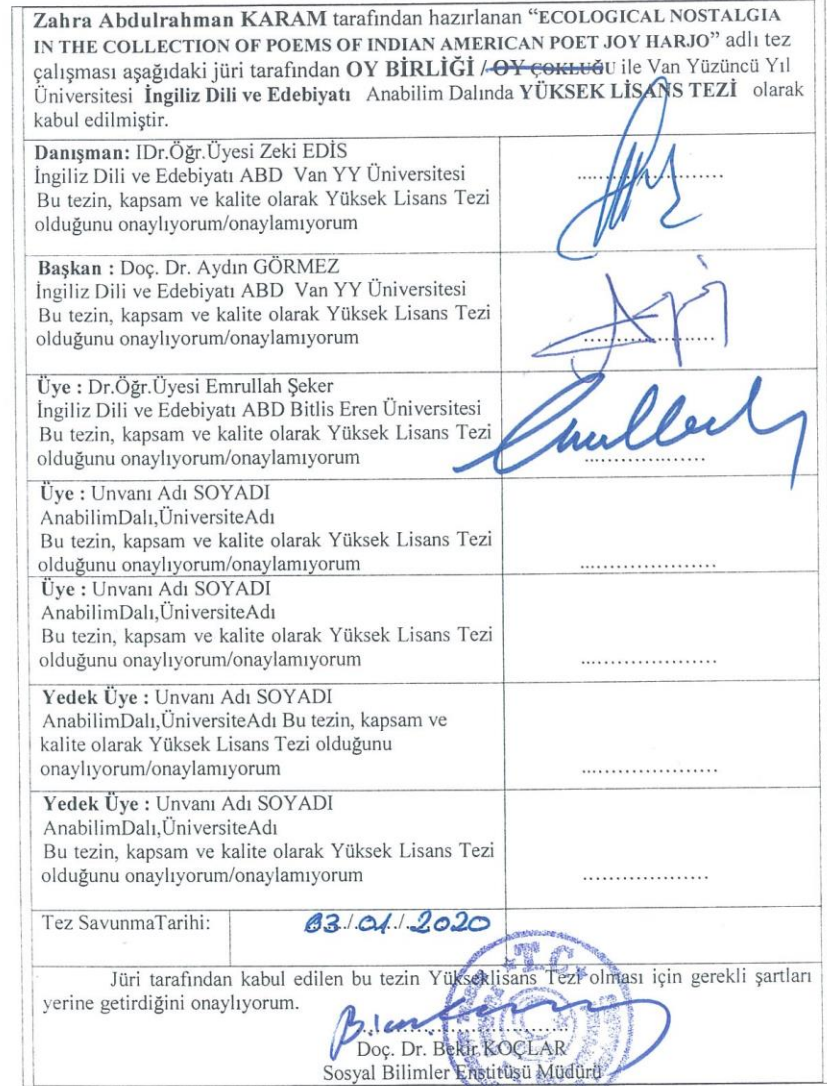 Zahra Abdulrahman KARAM tarafından hazırlanan “ECOLOGICAL NOSTALGIA
IN THE COLLECTION OF POEMS OF INDIAN AMERICAN POET JOY HARJO” adlı tez
çalışması aşağıdaki jüri tarafından OY BİRLİĞİ / OY ÇOKLUĞU ile Van Yüzüncü Yıl
Üniversitesi İngiliz Dili ve Edebiyatı Anabilim Dalında YÜKSEK LİSANS TEZİ olarak
kabul edilmiştir.
Danışman: IDr.Öğr.Üyesi Zeki EDİS
İngiliz Dili ve Edebiyatı ABD Van YY Üniversitesi
Bu tezin, kapsam ve kalite olarak Yüksek Lisans Tezi
olduğunu onaylıyorum/onaylamıyorum
.....................
Başkan : Doç. Dr. Aydın GÖRMEZ
İngiliz Dili ve Edebiyatı ABD Van YY Üniversitesi
Bu tezin, kapsam ve kalite olarak Yüksek Lisans Tezi
olduğunu onaylıyorum/onaylamıyorum
.....................
Üye : Dr.Öğr.Üyesi Emrullah Şeker
İngiliz Dili ve Edebiyatı ABD Bitlis Eren Üniversitesi
Bu tezin, kapsam ve kalite olarak Yüksek Lisans Tezi
olduğunu onaylıyorum/onaylamıyorum
.....................
Üye : Unvanı Adı SOYADI
AnabilimDalı,ÜniversiteAdı
Bu tezin, kapsam ve kalite olarak Yüksek Lisans Tezi
olduğunu onaylıyorum/onaylamıyorum
.....................
Üye : Unvanı Adı SOYADI
AnabilimDalı,ÜniversiteAdı
Bu tezin, kapsam ve kalite olarak Yüksek Lisans Tezi
olduğunu onaylıyorum/onaylamıyorum
.....................
Yedek Üye : Unvanı Adı SOYADI
AnabilimDalı,ÜniversiteAdı Bu tezin, kapsam ve
kalite olarak Yüksek Lisans Tezi olduğunu
onaylıyorum/onaylamıyorum
.....................
Yedek Üye : Unvanı Adı SOYADI
AnabilimDalı,ÜniversiteAdı
Bu tezin, kapsam ve kalite olarak Yüksek Lisans Tezi
olduğunu onaylıyorum/onaylamıyorum
.....................
Tez SavunmaTarihi: 03./.01./.2020
Jüri tarafından kabul edilen bu tezin Yükseklisans Tezi olması için gerekli şartları
yerine getirdiğini onaylıyorum.
T.C.
Doç. Dr. Bekir KOÇLAR
Sosyal Bilimler Enstitüsü Müdürü